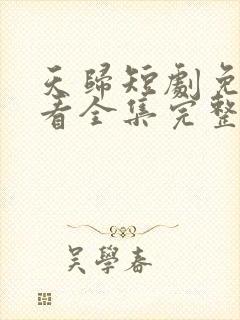 天歸短劇免
看全集完整
吴學春